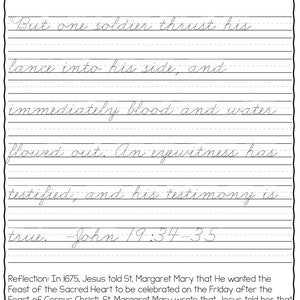 "But one soldier thrust his
lance into his side, and
immediately blood and water
flowed out. An eyewitness has
testified, and his testimony is
true. -John 19:34-35
Reflection: In 1675, Jesus told St. Margaret Mary that He wanted the
Feast of the Sacred Heart to be celebrated on the Friday after the
Feast of Corpus Christi. St. Margaret Mary wrote that Jesus told her that